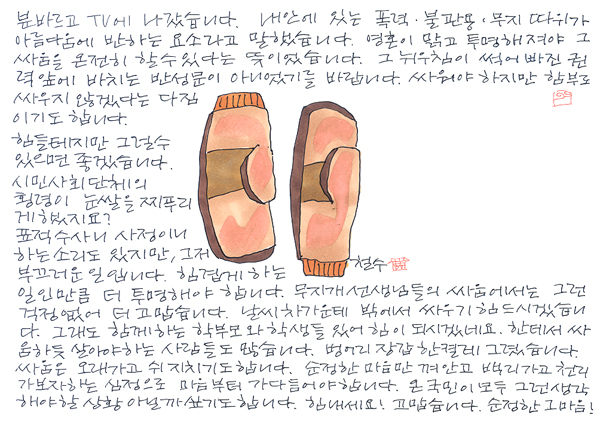 분바르고 TV에 나갔습니다. 내안에 있는 폭력·불관용·무지 따위가
아름다움에 반하는 요소라고 말했습니다. 영혼이 맑고 투명해져야 그
싸움을 온전히 할수있다는 뜻이었습니다. 그 뉘우침이 썩어 빠진 권
력앞에 바치는 반성문이 아니었기를 바랍니다. 싸워야 하지만 함부로
싸우지 않겠다는 다짐
이기도 합니다.
힘들테지만 그럴수
있으면 좋겠습니다.
시민사회단체의
횡령이 눈쌀을 찌푸리
게했지요?
표적수사니 사정이니
하는소리도 있지만, 그저
부끄러운일입니다. 힘겹게 하는
철수
일인만큼 더 투명해야 합니다. 무지개선생님들의 싸움에서는 그런
걱정없어 더 고맙습니다. 날씨차가운데 밖에서 싸우기 힘드시겠습니
다. 그래도 함께하는 학부모와 학생들 있어 힘이 되시겠네요. 한데서 싸
움하듯 살아야하는 사람들도 많습니다. 벙어리 장갑 한켤레 그렸습니다.
싸움은 오래가고 쉬 지치기도합니다. 순정한 마음만 껴안고 백리가고 천리
가보자하는 심정으로 마음부터 가다듬어야합니다. 온국민이모두 그런생각
해야할 상황 아닐까싶기도 합니다. 힘내세요! 고맙습니다. 순정한 그마음!